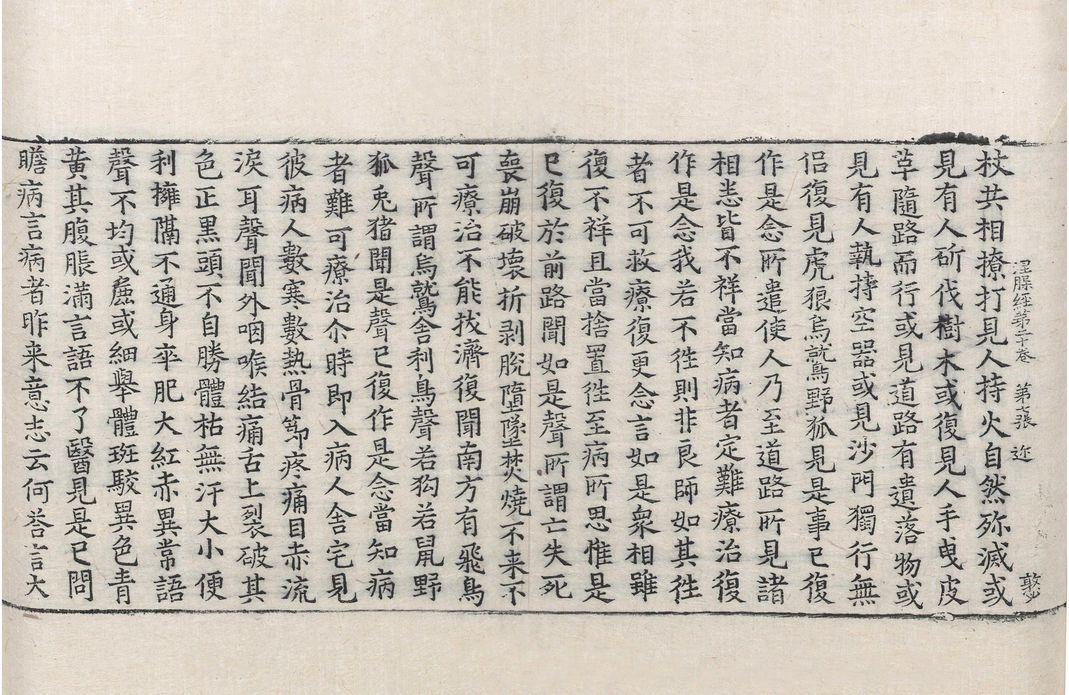 杖共相撩打見人持火自然殄滅或
涅槃經第二十卷　第七張　迩
見有人斫伐樹木或復見人手曳皮
草隨路而行或見道路有遺落物或
見有人執持空器或見沙門獨行無
侶復見虎狼烏鷲野狐見是事已復
作是念所遣使人乃至道路所見諸
相悉皆不祥當知病者定難療治復
作是念我若不往則非良師如其往
者不可救療復更念言如是衆相雖
復不祥且當捨置往至病所思惟是
已復於前路聞如是聲所謂亡失死
喪崩破壞折剥脫墮墜焚燒不来不
可療治不能拔濟復聞南方有飛鳥
聲所謂烏鷲舍利鳥聲若狗若鼠野
狐兎猪聞是聲已復作是念當知病
者難可療治尒時即入病人舍宅見
彼病人數寒數熱骨節疼痛目赤流
淚耳聲聞外咽喉結痛舌上裂破其
色正黒頭不自勝體枯無汗大小便
利擁隔不通身卒肥大紅赤異常語
聲不均或麁或細舉體斑駮異色青
黄其腹脹滿言語不了醫見是已問
瞻病言病者昨来意志云何荅言大